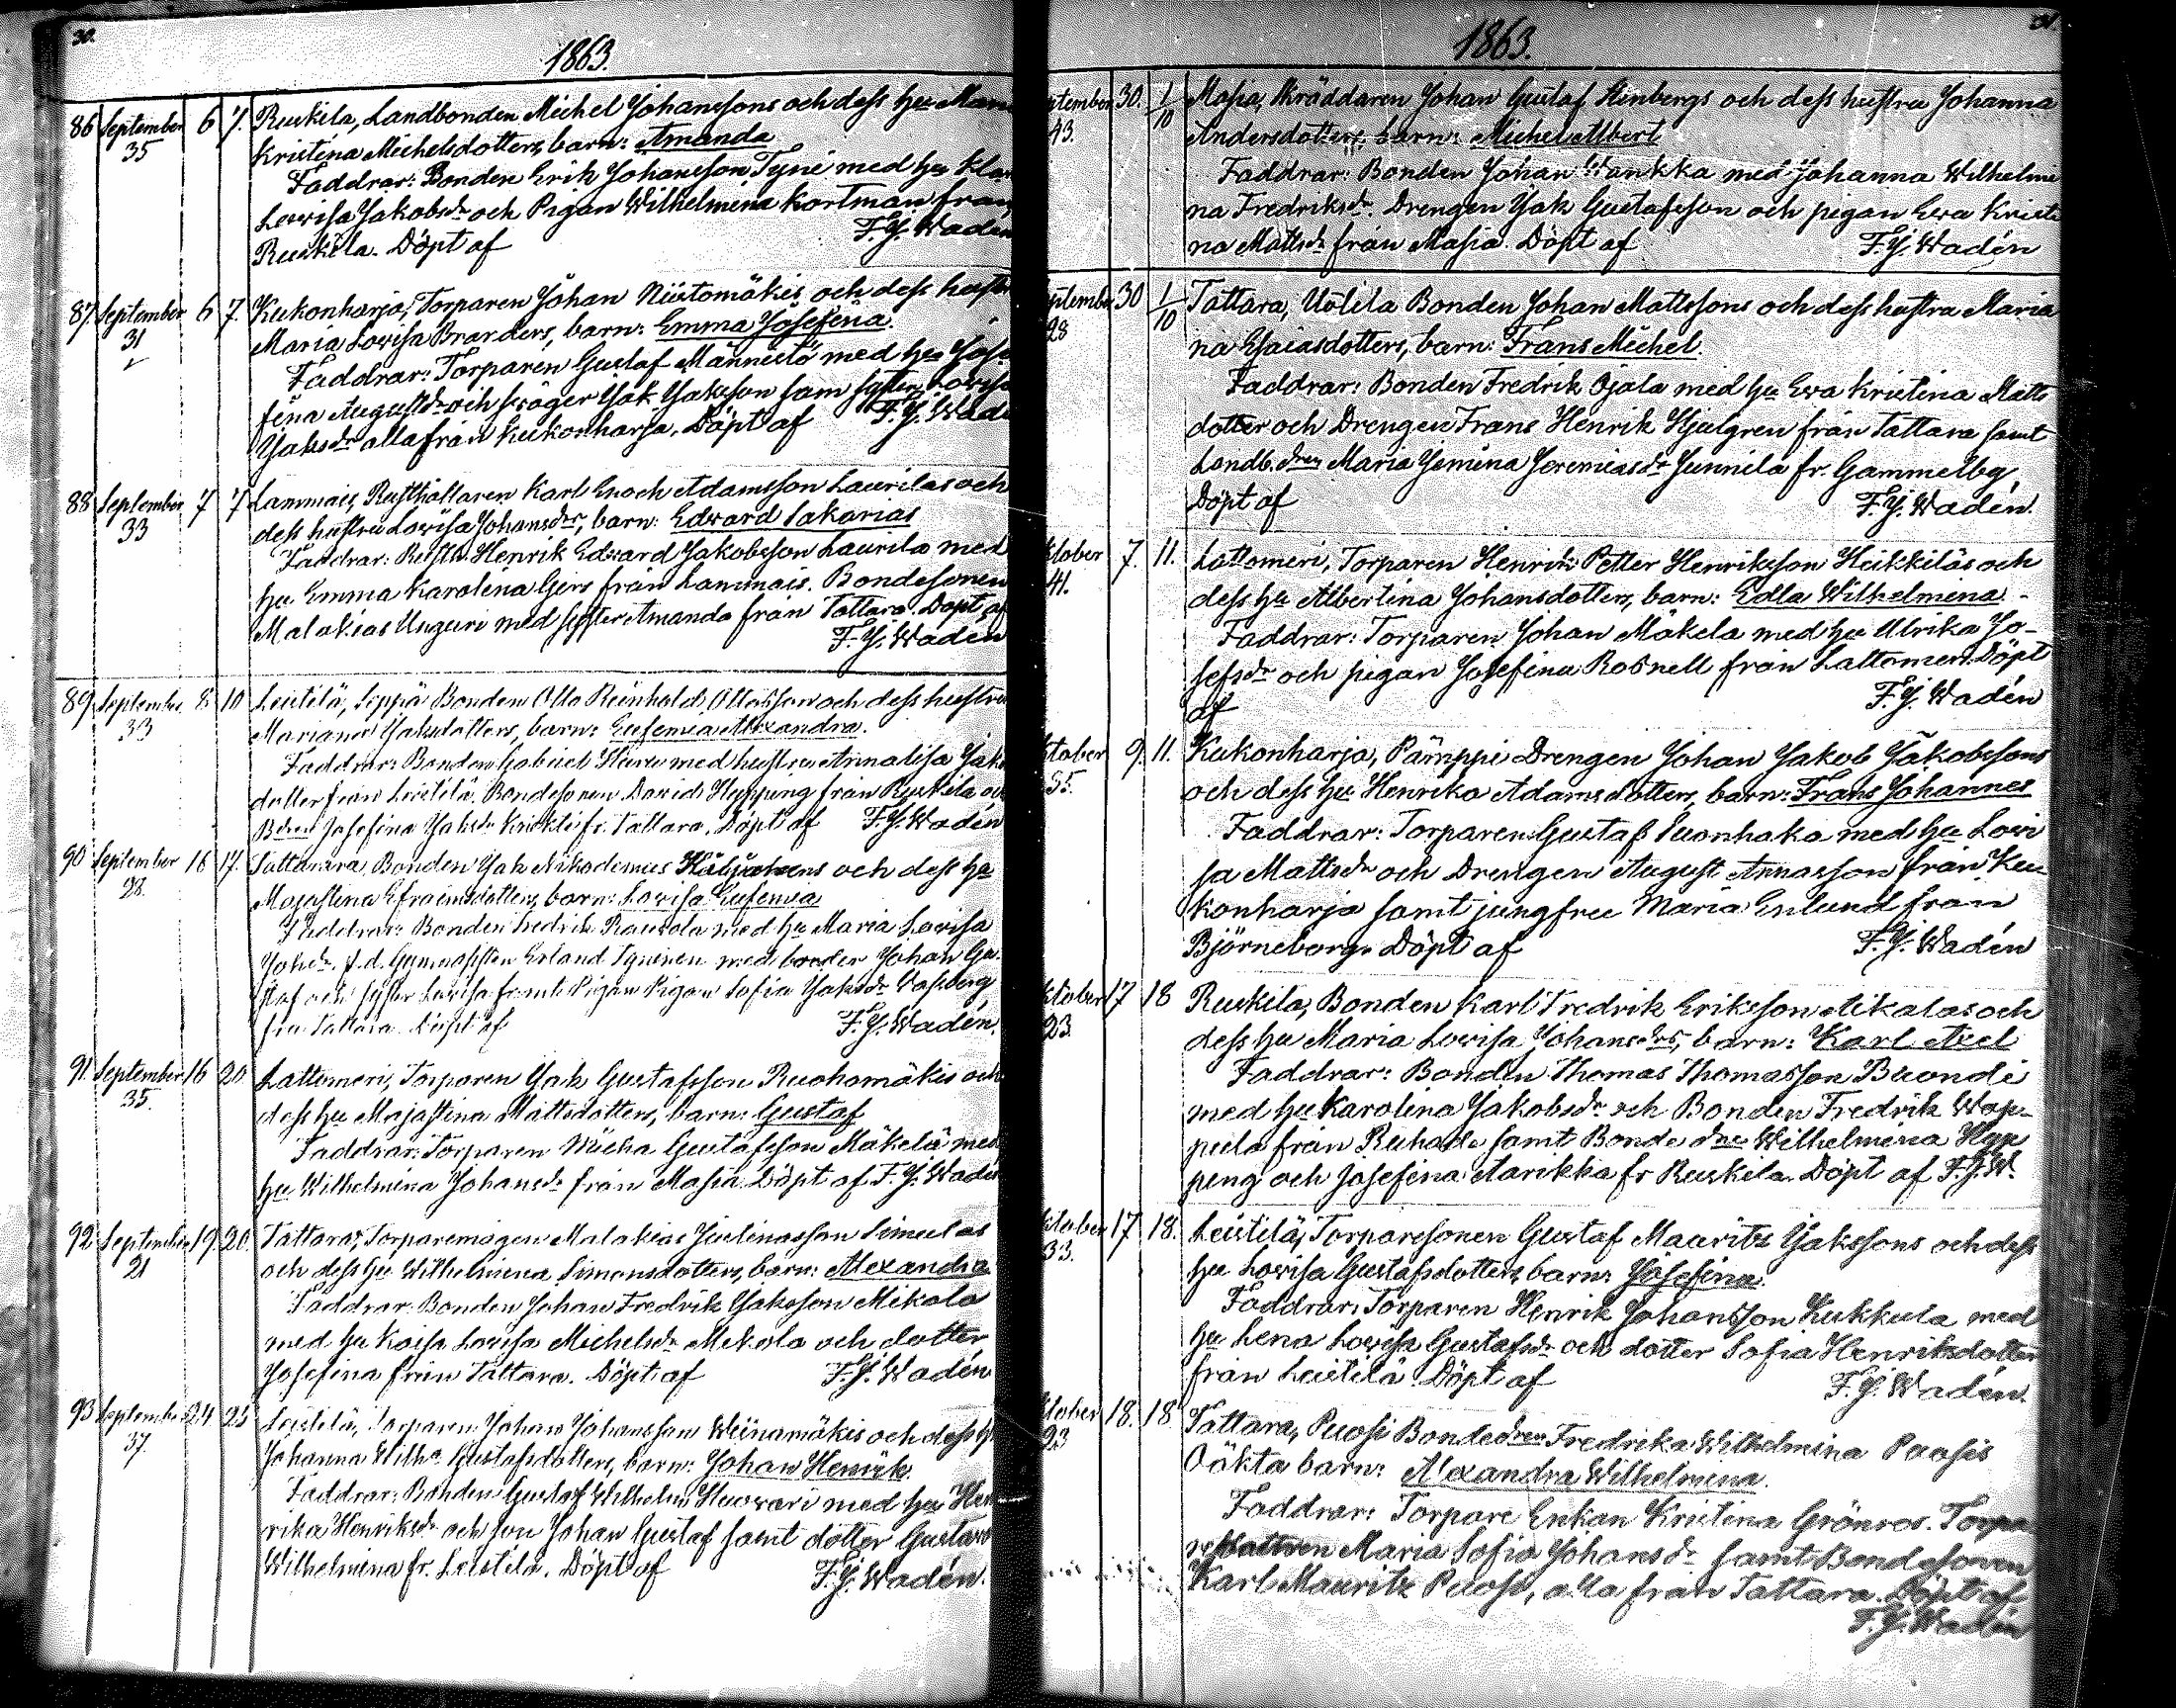 30.
1863.
86 September 6 7. Ruskila, Landbonden Michel Johanssons och dess hu Mari
35 Kristina Michelsdotters, barn: Amanda
Faddrar: Bonden Erik Johansson Tyni med hu Kla
Lowisa Jakobsdr och Pigan Wilhelmina Kortman från
Ruskila. Döpt af F. J. Wadén
87 September 6 7. Kukonharja, Torparen Johan Niistomäkis och dess hustru
31 Maria Lovisa Branders, barn: Emma Josefina.
Faddrar: Torparen Gustaf Männistö med hu Jose
fina Augustdr och svåger Jak Jaksson sam syster Lovisa
Jaksdr alla från Kukonharja. Döpt af F. J. Wadé
88 September 7 7 Lammais, Rusthållaren Karl Enoch Adamsson Laurilas och
33 dess hustru Lovisa Johansdrs, barn: Edvard Sakarias
Faddrar: Rusth. Henrik Edvard Jakobsson Laurila med
hu Emma Karolena Gers från Lammais. Bondesonen
Malakias Unguri med syster Amanda från Tattara. Döpt af
F. J. Wadén
89 September 8 10 Leistilä, Sippä Bonden Otto Reinhold Ottosson och dess hustru
33 Mariana Jaksdotters, barn: Eufemia Alexandra.
Faddrar: Bonden Gabriel med hustru Annalisa Jaks
dotter från Leistilä. Bondesonen David Hyppeng från Ruskila och
Bdren Josefina Jaksdr fr. Tattara. Döpt af F. J. Wadén
90 September 16 17. Bonden Jak Nikodemus och dess hu
28. Majastina Efraimsdotters, barn: Lovisa Eufemia
Faddrar: Bonden Fredrik Rautola med hu Maria Lovisa
Johdr. Erland Tyninen med broder Johan Gu
staf och syster Lovisa samt Pigan Pigan Sofia Jaksdr
från Tattara. Döpt af F. J. Wadén.
91. September 16 20. Lattomeri, Torparen Jak Gustafsson Ruohomäkis och
35. dess hu Majastina Mattsdotters, barn: Gustaf
Faddrar: Torparen Micha Gustafsson Mäkelä med
hu Wilhelmina Johansdr från Masia. Döpt af F. J. Wadén
92 September 19. 20. Tattara, Torparemågen Malakias Juslinasson Simulas
21 och dess hu Wilhelmina Simonsdotters, barn: Alexandra
Faddrar: Bonden Johan Fredrik Jaksson Mikola
med hu Kaisa Lovisa Michelsdr Mikola och dotter
Josefina från Tattara. Döpt af F. J. Wadén
93 September 24 25 Leistilä, Torparen Johan Johansson Weinamäkis och dess hu
37. Johanna Wilha Gustafsdotters, barn: Johan Henrik.
Faddrar: Bonden Gustaf Wilhelm Huovari med hu Hen
rika Henriksdr och son Johan Gustaf samt dotter Gustava
Wilhelmina fr. Leistilä. Döpt af F. J. Wadén.
31.
1863.
ptember 30. 1/10 Masia, Skräddaren Johan Gustaf Stenbergs och dess hustru Johanna
43. Andersdotters, barn: Michel Albert
Faddrar: Bonden Johan med Johanna Wilhelmi
na Fredriksdr. Drengen Jak Gustafsson och pigan Eva Kristi
na Mattsdr från Masia. Döpt af F. J. Wadén
eptember 30 1/10 Tattara, Uotila Bonden Johan Mattssons och dess hustru Maria
28 na Esaiasdotters, barn: Frans Michel.
Faddrar: Bonden Fredrik Ojala med hu Eva Kristina Matts
dotter och Drengen Frans Henrik Hjulgren från Tattara samt
Landb. dren Maria Jemina Jeremiasdr Junnila fr. Gammelby,
Döpt af F. J. Wadén.
ktober 7. 11. Lattomeri, Torparen Henrik Petter Henriksson Heikkiläs och
41. dess hu Albertina Johansdotters, barn: Edla Wilhelmina.
Faddrar: Torparen Johan Mäkela med hu Ulrika Jo-
sefsdr och pigan Josefina Rosnell från Lattomeri. Döpt
af F. J. Wadén
ktober 9. 11. Kukonharja, Pämppi Drengen Johan Jakob Jakobssons
35. och dess hu Henrika Adamsdotters, barn: Frans Johannes
Faddrar: Torparen Gustaf Puonhaka med hu Lovi
sa Mattsdr och Drengen August Annasson från Ku
konharja samt jungfru Maria Enlund från
Björneborg. Döpt af F. J. Wadén
ktober 17 18 Ruskila, Bonden Karl Fredrik Eriksson Mikalas och
23. dess hu Maria Lovisa Johansdrs, barn: Karl Axel
Faddrar: Bonden Thomas Thomasson Buondi
med hu Karolina Jakobsdr och Bonden Fredrik Wap-
pula från Ruhade samt Bonde dne Wilhelmina Hyp
peng och Josefina Aarikka fr Ruskila. Döpt af F. J. W.
ktober 17 18. Leistilä, Torparesonen Gustaf Mauritz Jakssons och dess
33. hu Lovisa Gustafsdotters, barn: Josefina.
Faddrar: Torparen Henrik Johansson Kukkula med
hu Lena Lovisa Gustafsdr och dotter Sofia Henriksdotter
från Leistilä. Döpt af F. J. Wadén.
ktober 18. 18 Tattara, Puosi Bondedren Fredrika Wilhelmina Puosis
23 Oäkta barn: Alexandra Wilhelmina.
Faddrar: Torpare Enkan Kristina Grönros. Torpa
rehustrun Maria Sofia Johansdr samt Bondesonen
Karl Mauritz Puosi, alla från Tattara. Döpt af
F. J. Wadén